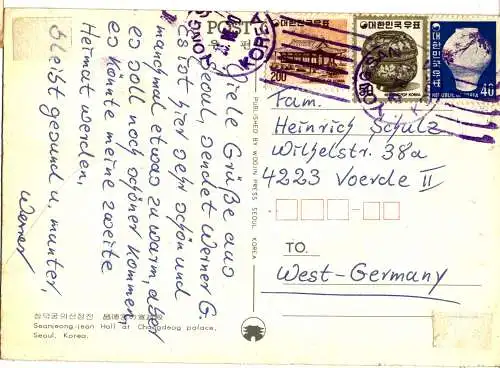 POST CARD
Viele Grüße aus
Seoul, sendet Werner G.
Es ist hier sehr schön und
manchmal etwas zu warm, aber
es soll noch schöner kommen,
es könnte meine zweite
Heimat werden.
Bleibt gesund u. munter,
Werner
창덕궁의선정전
Seonjeong-jean Hall at Changdeog palace,
Seoul, Korea.
PUBLISHED BY WOOJIN PRESS SEOUL KOREA
대한민국우표
200
대한민국우표
REPUBLIC OF KOREA
대한민국우표
REPUBLIC OF KOREA
40
YONGSAN
KOREA
Fam.
Heinrich Schulz
Wilhelstr. 38a
4223 Voerde II
TO
West-Germany